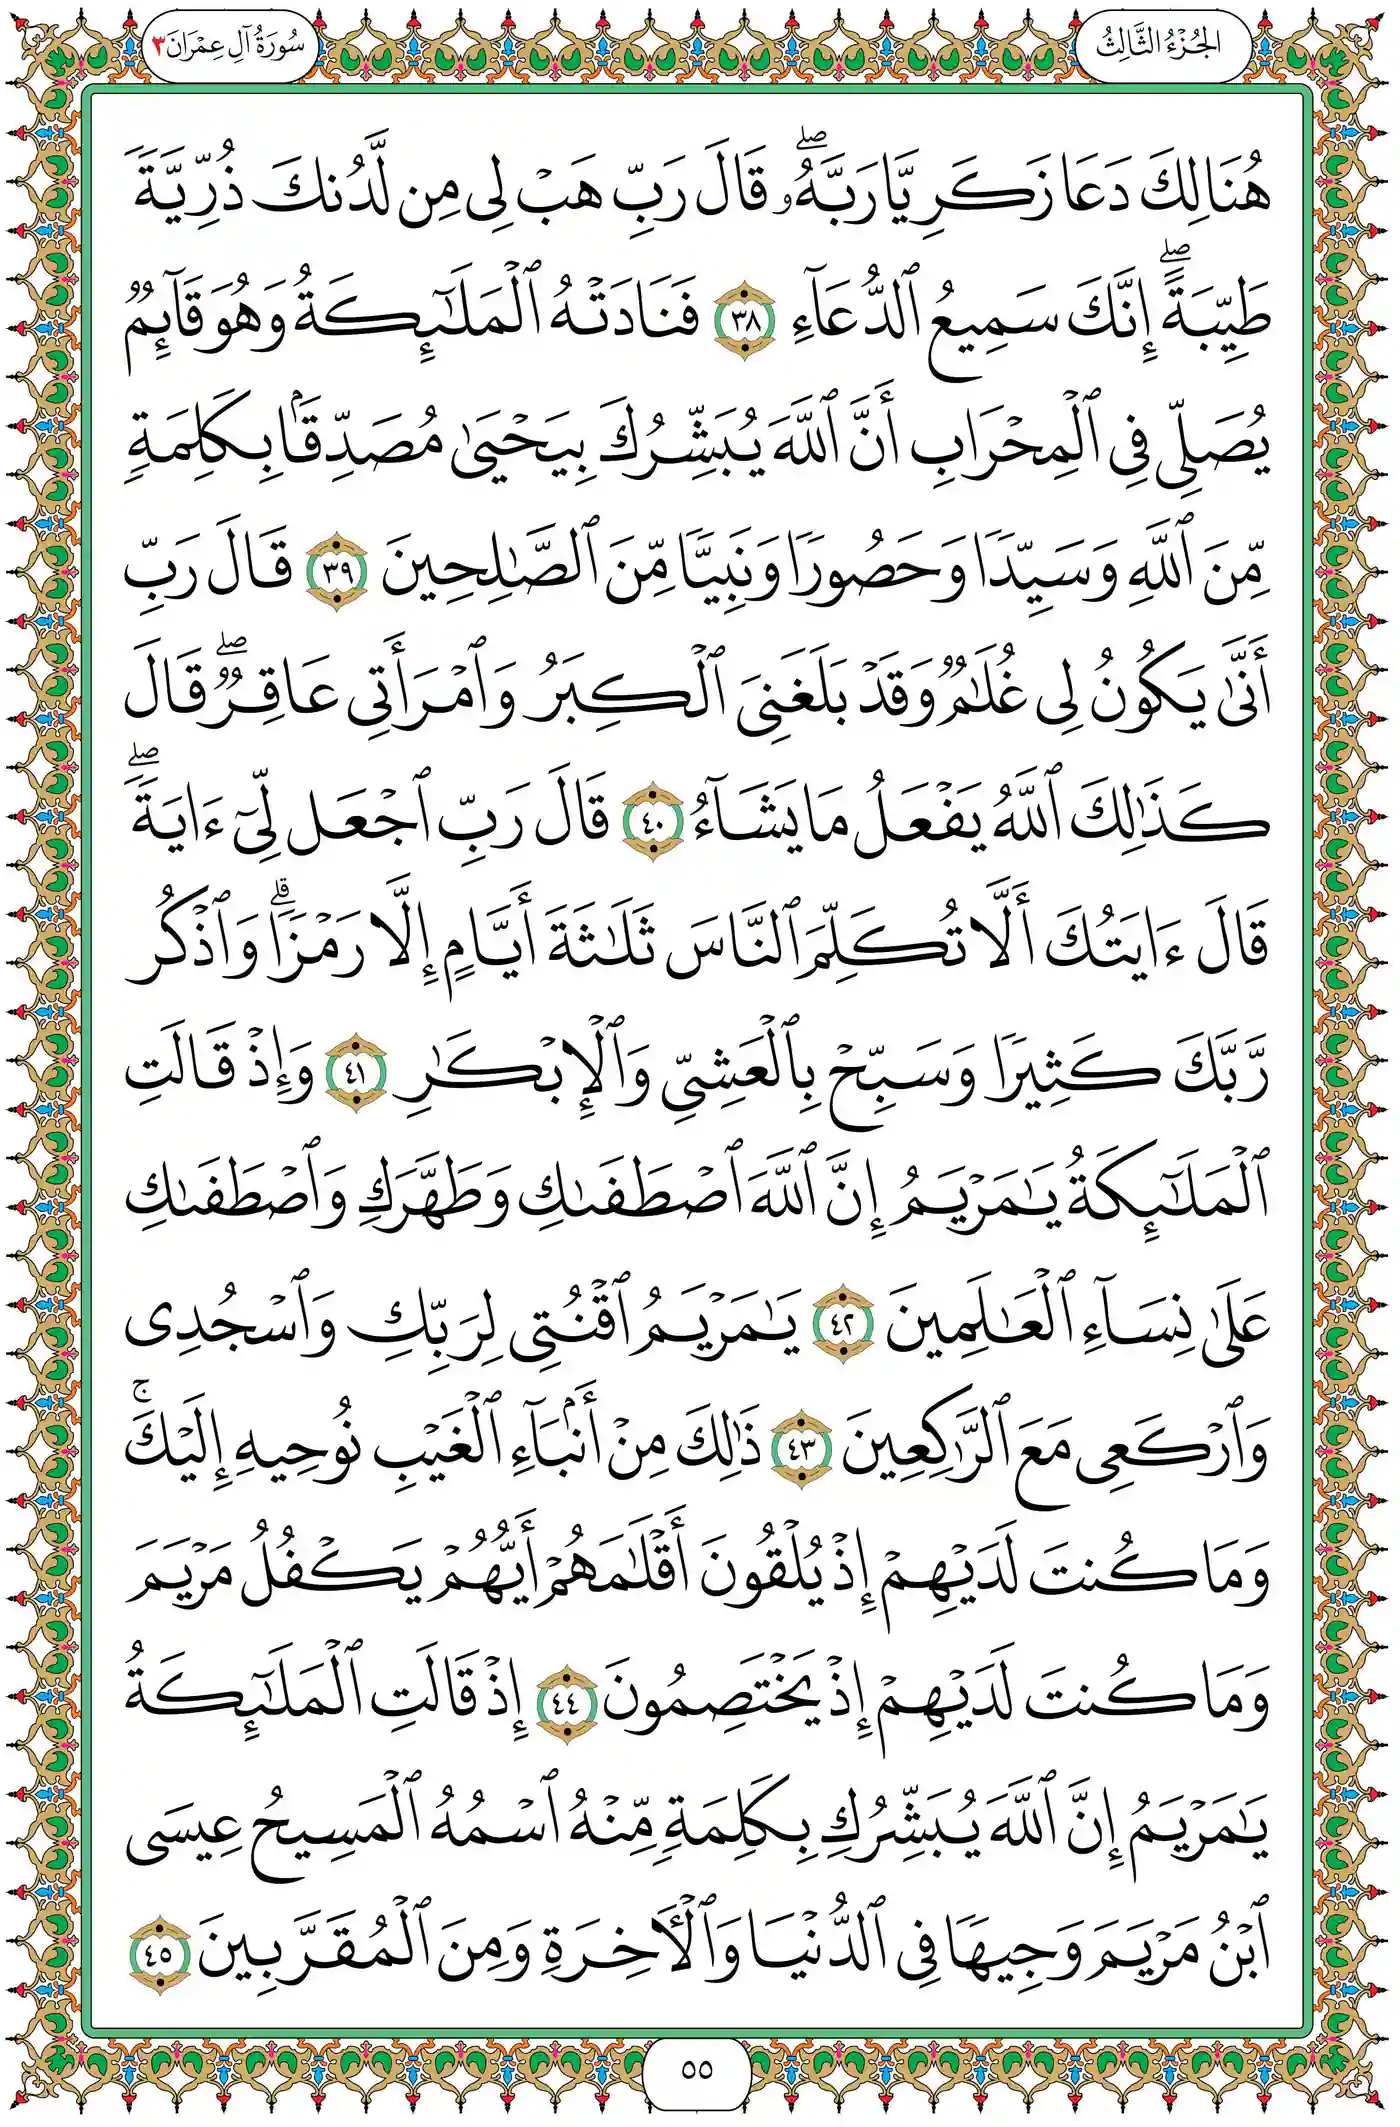 الجُزْءُ الثَّالِثُ
سُورَةُ آلِ عِمْرَانَ ٣
هُنَالِكَ دَعَا زَكَرِيَّا رَبَّهُۥۖ قَالَ رَبِّ هَبْ لِى مِن لَّدُنكَ ذُرِّيَّةً
طَيِّبَةًۖ إِنَّكَ سَمِيعُ ٱلدُّعَآءِ ٣٨ فَنَادَتْهُ ٱلْمَلَٰٓئِكَةُ وَهُوَ قَآئِمٌ
يُصَلِّى فِى ٱلْمِحْرَابِ أَنَّ ٱللَّهَ يُبَشِّرُكَ بِيَحْيَىٰ مُصَدِّقًۢا بِكَلِمَةٍ
مِّنَ ٱللَّهِ وَسَيِّدًا وَحَصُورًا وَنَبِيًّا مِّنَ ٱلصَّٰلِحِينَ ٣٩ قَالَ رَبِّ
أَنَّىٰ يَكُونُ لِى غُلَٰمٌ وَقَدْ بَلَغَنِىَ ٱلْكِبَرُ وَٱمْرَأَتِى عَاقِرٌۖ قَالَ
كَذَٰلِكَ ٱللَّهُ يَفْعَلُ مَا يَشَآءُ ٤٠ قَالَ رَبِّ ٱجْعَل لِّىٓ ءَايَةًۖ
قَالَ ءَايَتُكَ أَلَّا تُكَلِّمَ ٱلنَّاسَ ثَلَٰثَةَ أَيَّامٍ إِلَّا رَمْزًاۗ وَٱذْكُر
رَّبَّكَ كَثِيرًا وَسَبِّحْ بِٱلْعَشِىِّ وَٱلْإِبْكَٰرِ ٤١ وَإِذْ قَالَتِ
ٱلْمَلَٰٓئِكَةُ يَٰمَرْيَمُ إِنَّ ٱللَّهَ ٱصْطَفَىٰكِ وَطَهَّرَكِ وَٱصْطَفَىٰكِ
عَلَىٰ نِسَآءِ ٱلْعَٰلَمِينَ ٤٢ يَٰمَرْيَمُ ٱقْنُتِى لِرَبِّكِ وَٱسْجُدِى
وَٱرْكَعِى مَعَ ٱلرَّٰكِعِينَ ٤٣ ذَٰلِكَ مِنْ أَنۢبَآءِ ٱلْغَيْبِ نُوحِيهِ إِلَيْكَۚ
وَمَا كُنتَ لَدَيْهِمْ إِذْ يُلْقُونَ أَقْلَٰمَهُمْ أَيُّهُمْ يَكْفُلُ مَرْيَمَ
وَمَا كُنتَ لَدَيْهِمْ إِذْ يَخْتَصِمُونَ ٤٤ إِذْ قَالَتِ ٱلْمَلَٰٓئِكَةُ
يَٰمَرْيَمُ إِنَّ ٱللَّهَ يُبَشِّرُكِ بِكَلِمَةٍ مِّنْهُ ٱسْمُهُ ٱلْمَسِيحُ عِيسَى
ٱبْنُ مَرْيَمَ وَجِيهًا فِى ٱلدُّنْيَا وَٱلْأَخِرَةِ وَمِنَ ٱلْمُقَرَّبِينَ ٤٥
٥٥